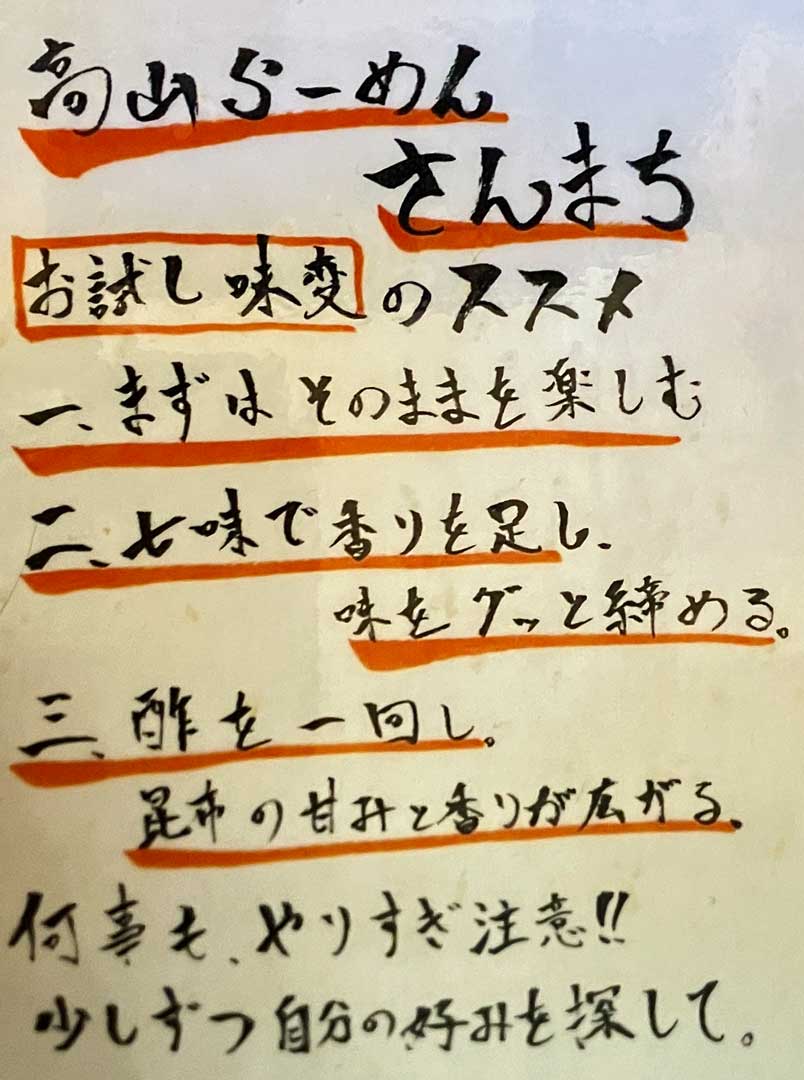 高山らーめん
さんまち
お試し味変のススメ
一、まずはそのままを楽しむ
二、七味で香りを足し、
味をグッと締める。
三、酢を一回し。
昆布の甘みと香りが広がる。
何事も、やりすぎ注意!!
少しずつ自分の好みを探して。